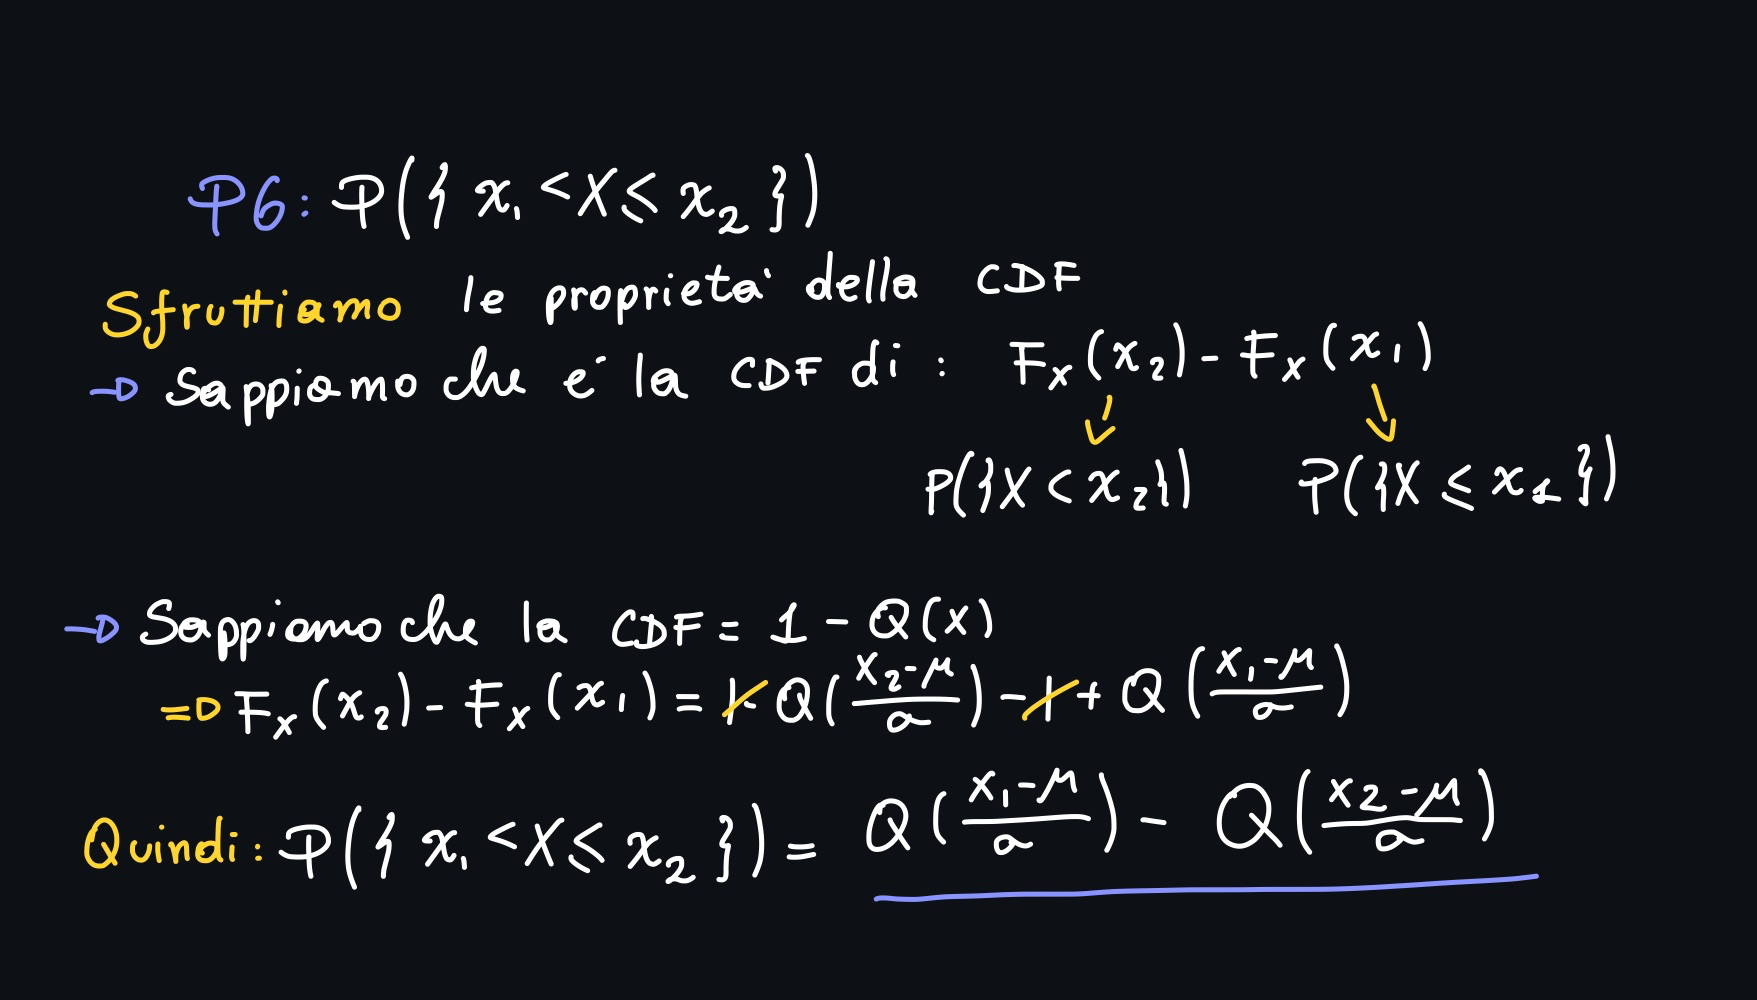 P6: P({ x₁ < X ≤ x₂ })
Sfruttiamo le proprietà della CDF
→ Sappiamo che è la CDF di : Fₓ(x₂) - Fₓ(x₁)
P({X < x₂}) P({X ≤ x₁})
→ Sappiamo che la CDF = 1 - Q(x)
⇒ Fₓ(x₂) - Fₓ(x₁) = 1 - Q((x₂-μ)/σ) - 1 + Q((x₁-μ)/σ)
Quindi: P({ x₁ < X ≤ x₂ }) = Q((x₁-μ)/σ) - Q((x₂-μ)/σ)